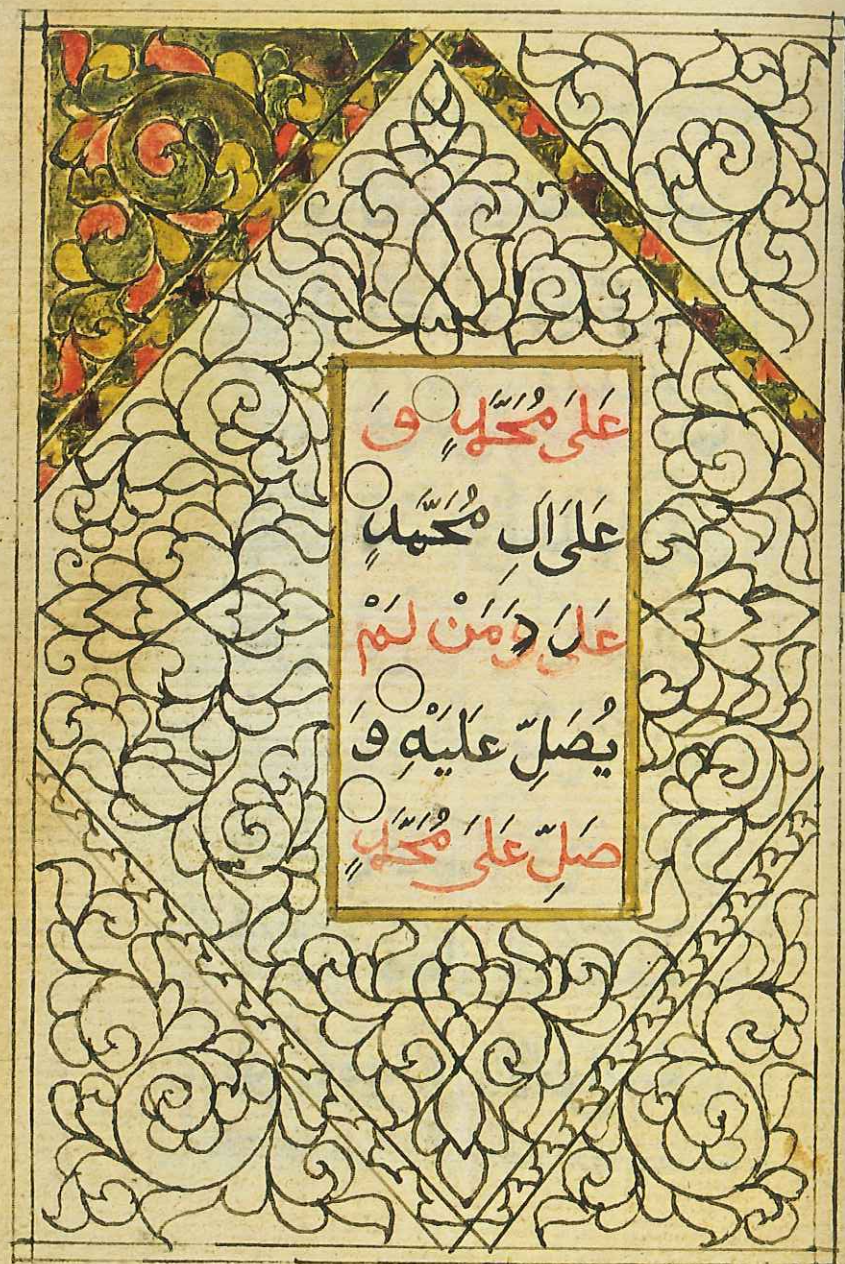 عَلَىٰ مُحَمَّدٍ وَ
عَلَىٰ اٰلِ مُحَمَّدٍ
عَدَدَ وَمَنْ لَمْ
يُصَلِّ عَلَيْهِ وَ
صَلِّ عَلَىٰ مُحَمَّدٍ